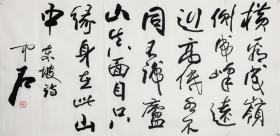 橫看成嶺
側成峰遠
近高低各不
同不識廬
山真面目只
緣身在此山
中 東坡詩
中石